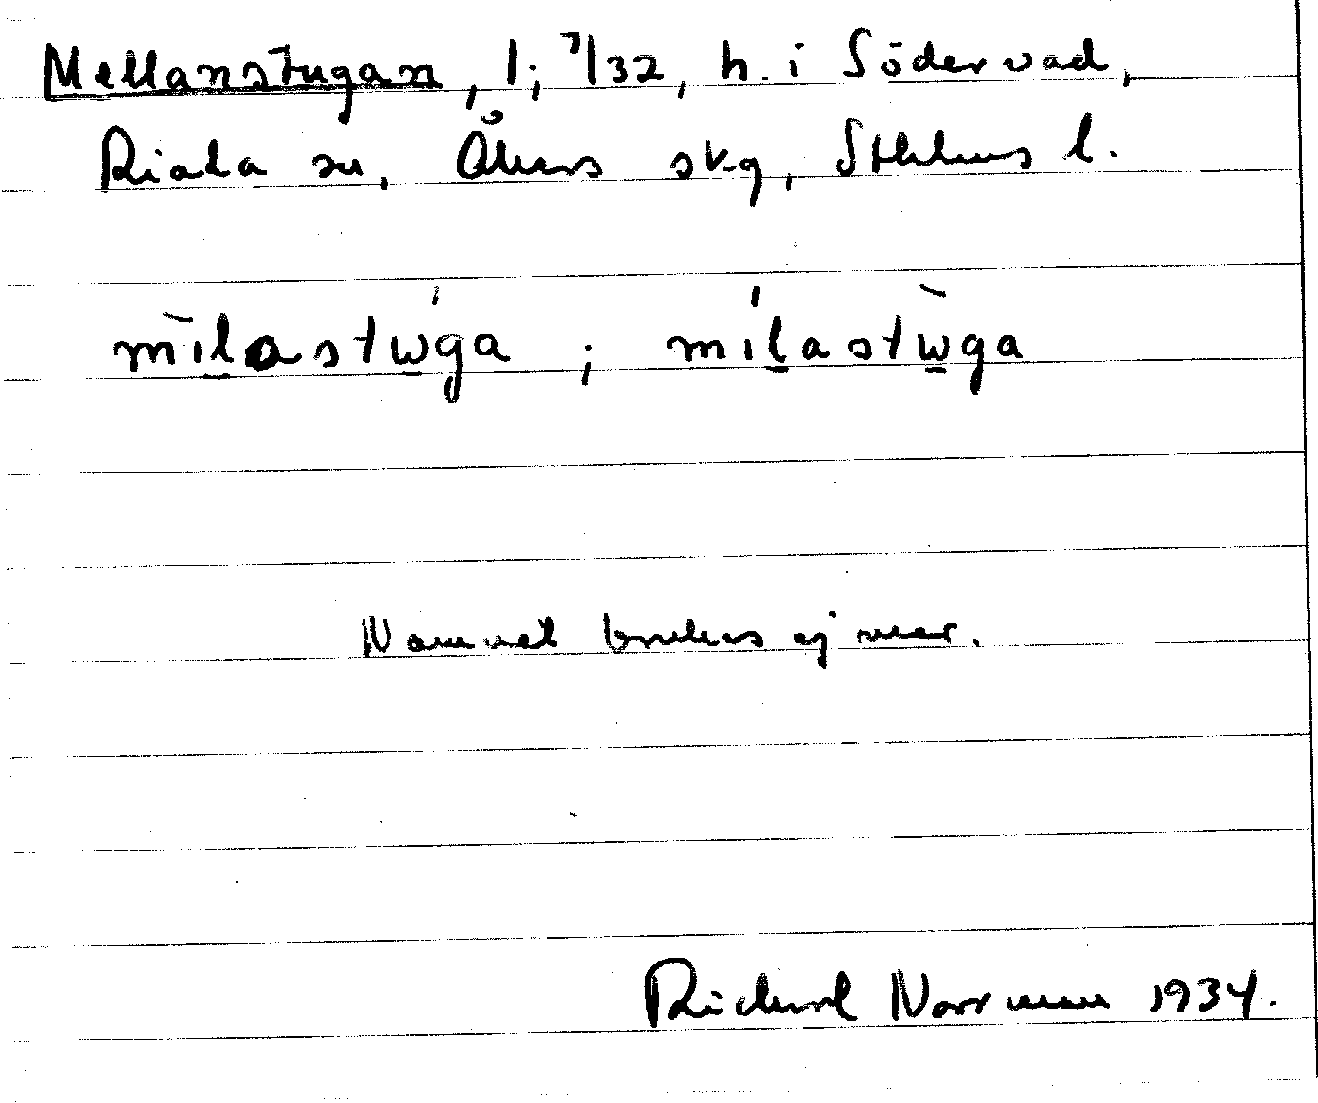 Mellanstugan, 1; 7/32, h. i Södervad,
Riala sn, Åkers skg, Sthlms l.
mìlastẃga ; mílastẁga
Namnet brukas ej mer.
Richard Norrman 1934.